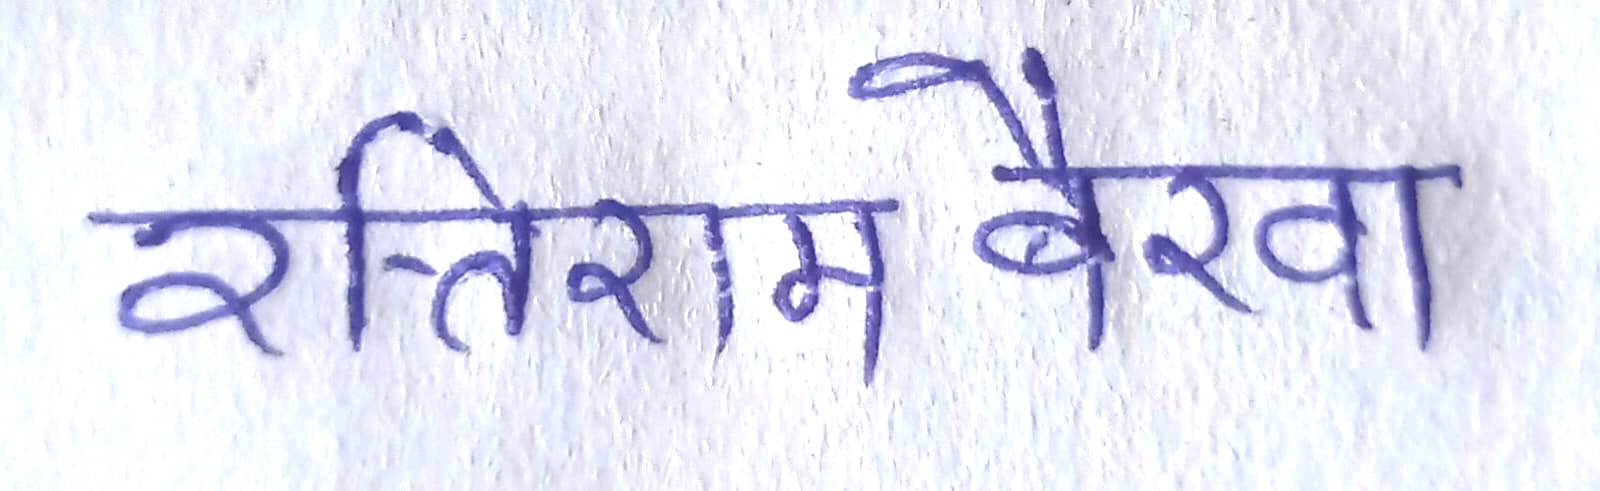 रत्तिराम बैरवा